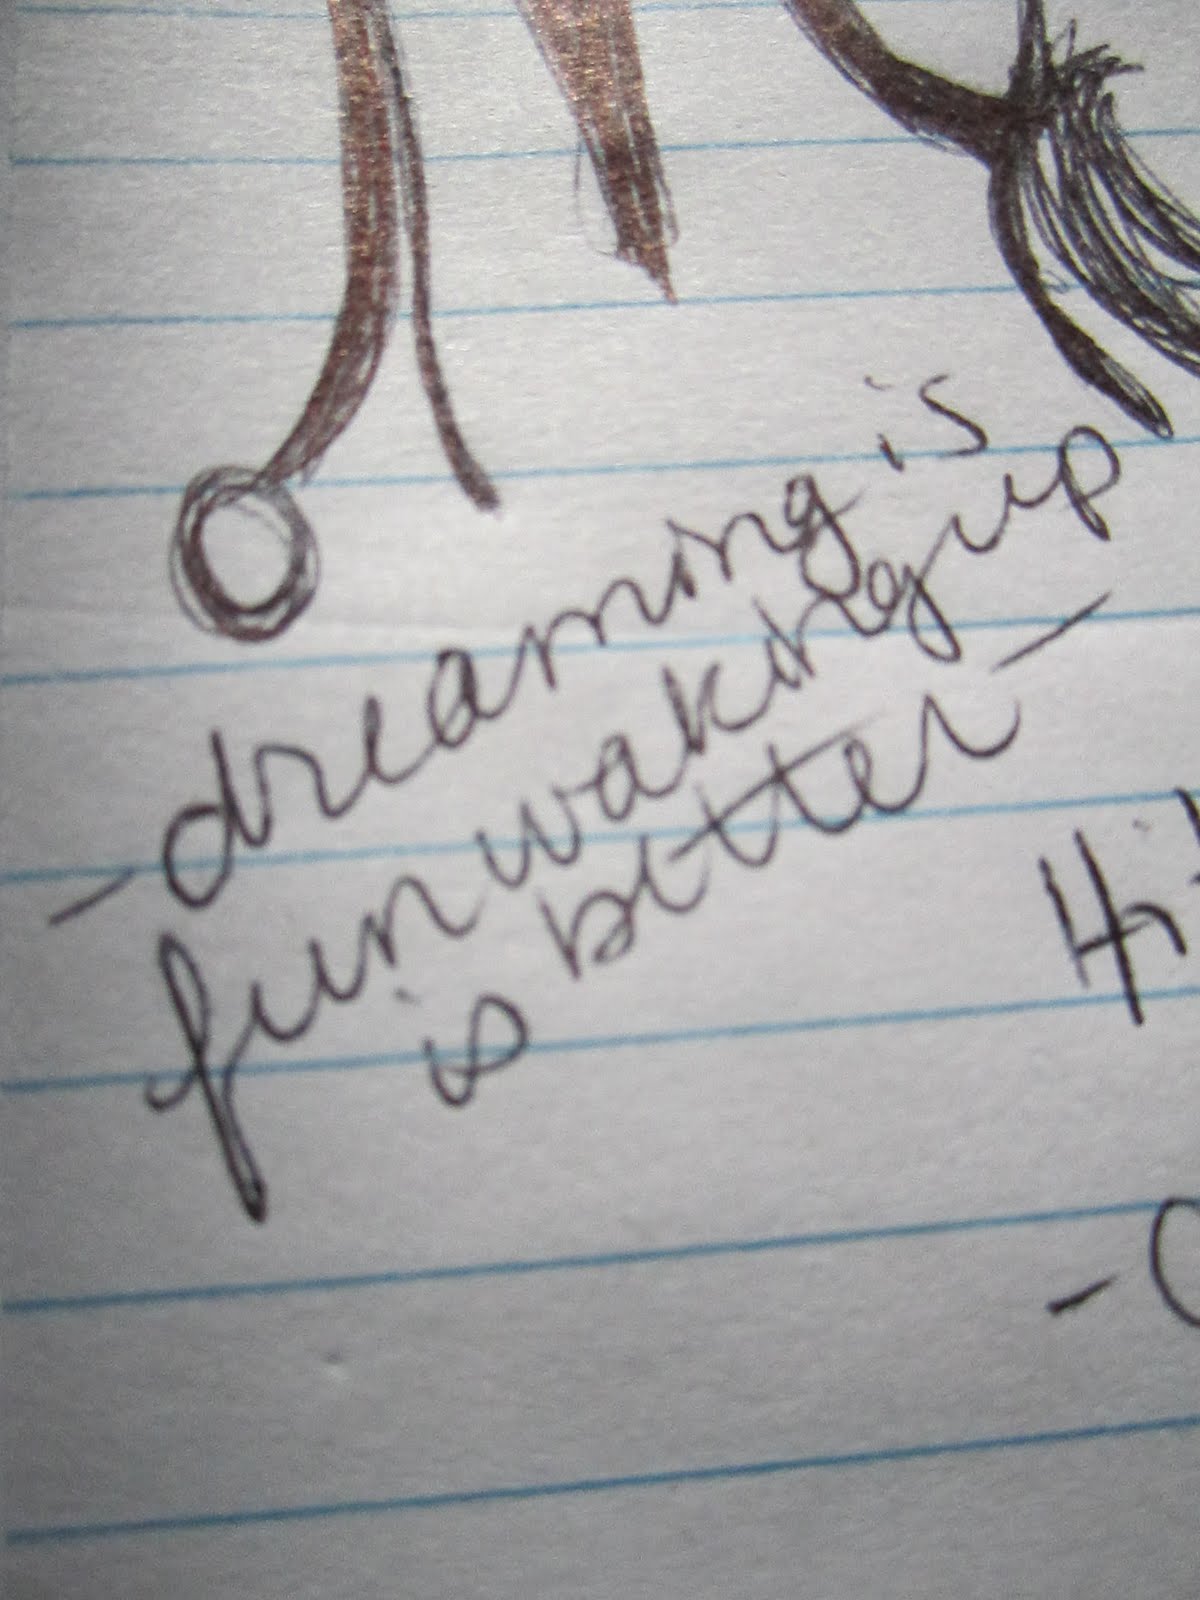 -dreaming is
fun waking up
is better-
Hi
-